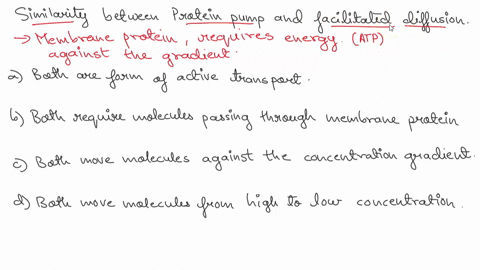 Similarity between Protein pump and facilitated diffusion.
→ Membrane protein, requires energy (ATP)
against the gradient.
a) Both are form of active transport.
b) Both require molecules passing through membrane protein
c) Both move molecules against the concentration gradient.
d) Both move molecules from high to low concentration.